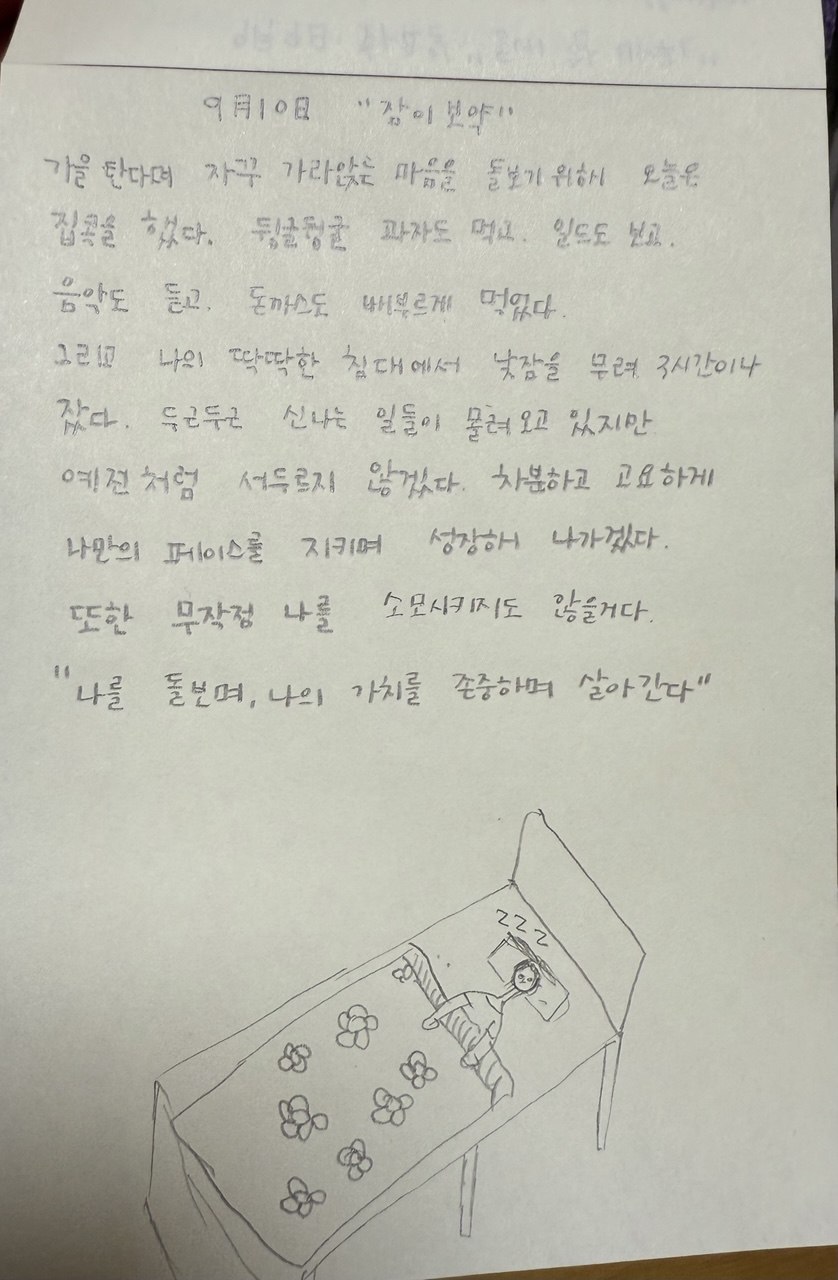 9月10日 "잠이 보약"
가을 탄다며 자꾸 가라앉는 마음을 돌보기 위해 오늘은
집콕을 했다. 뒹굴뒹굴 과자도 먹고. 일드도 보고.
음악도 듣고. 돈까스도 배부르게 먹었다.
그리고 나의 딱딱한 침대에서 낮잠을 무려 3시간이나
잤다. 두근두근 신나는 일들이 몰려오고 있지만
예전처럼 서두르지 않겠다. 차분하고 고요하게
나만의 페이스를 지키며 성장해 나가겠다.
또한 무작정 나를 소모시키지도 않을거다.
"나를 돌보며, 나의 가치를 존중하며 살아간다"
zzz